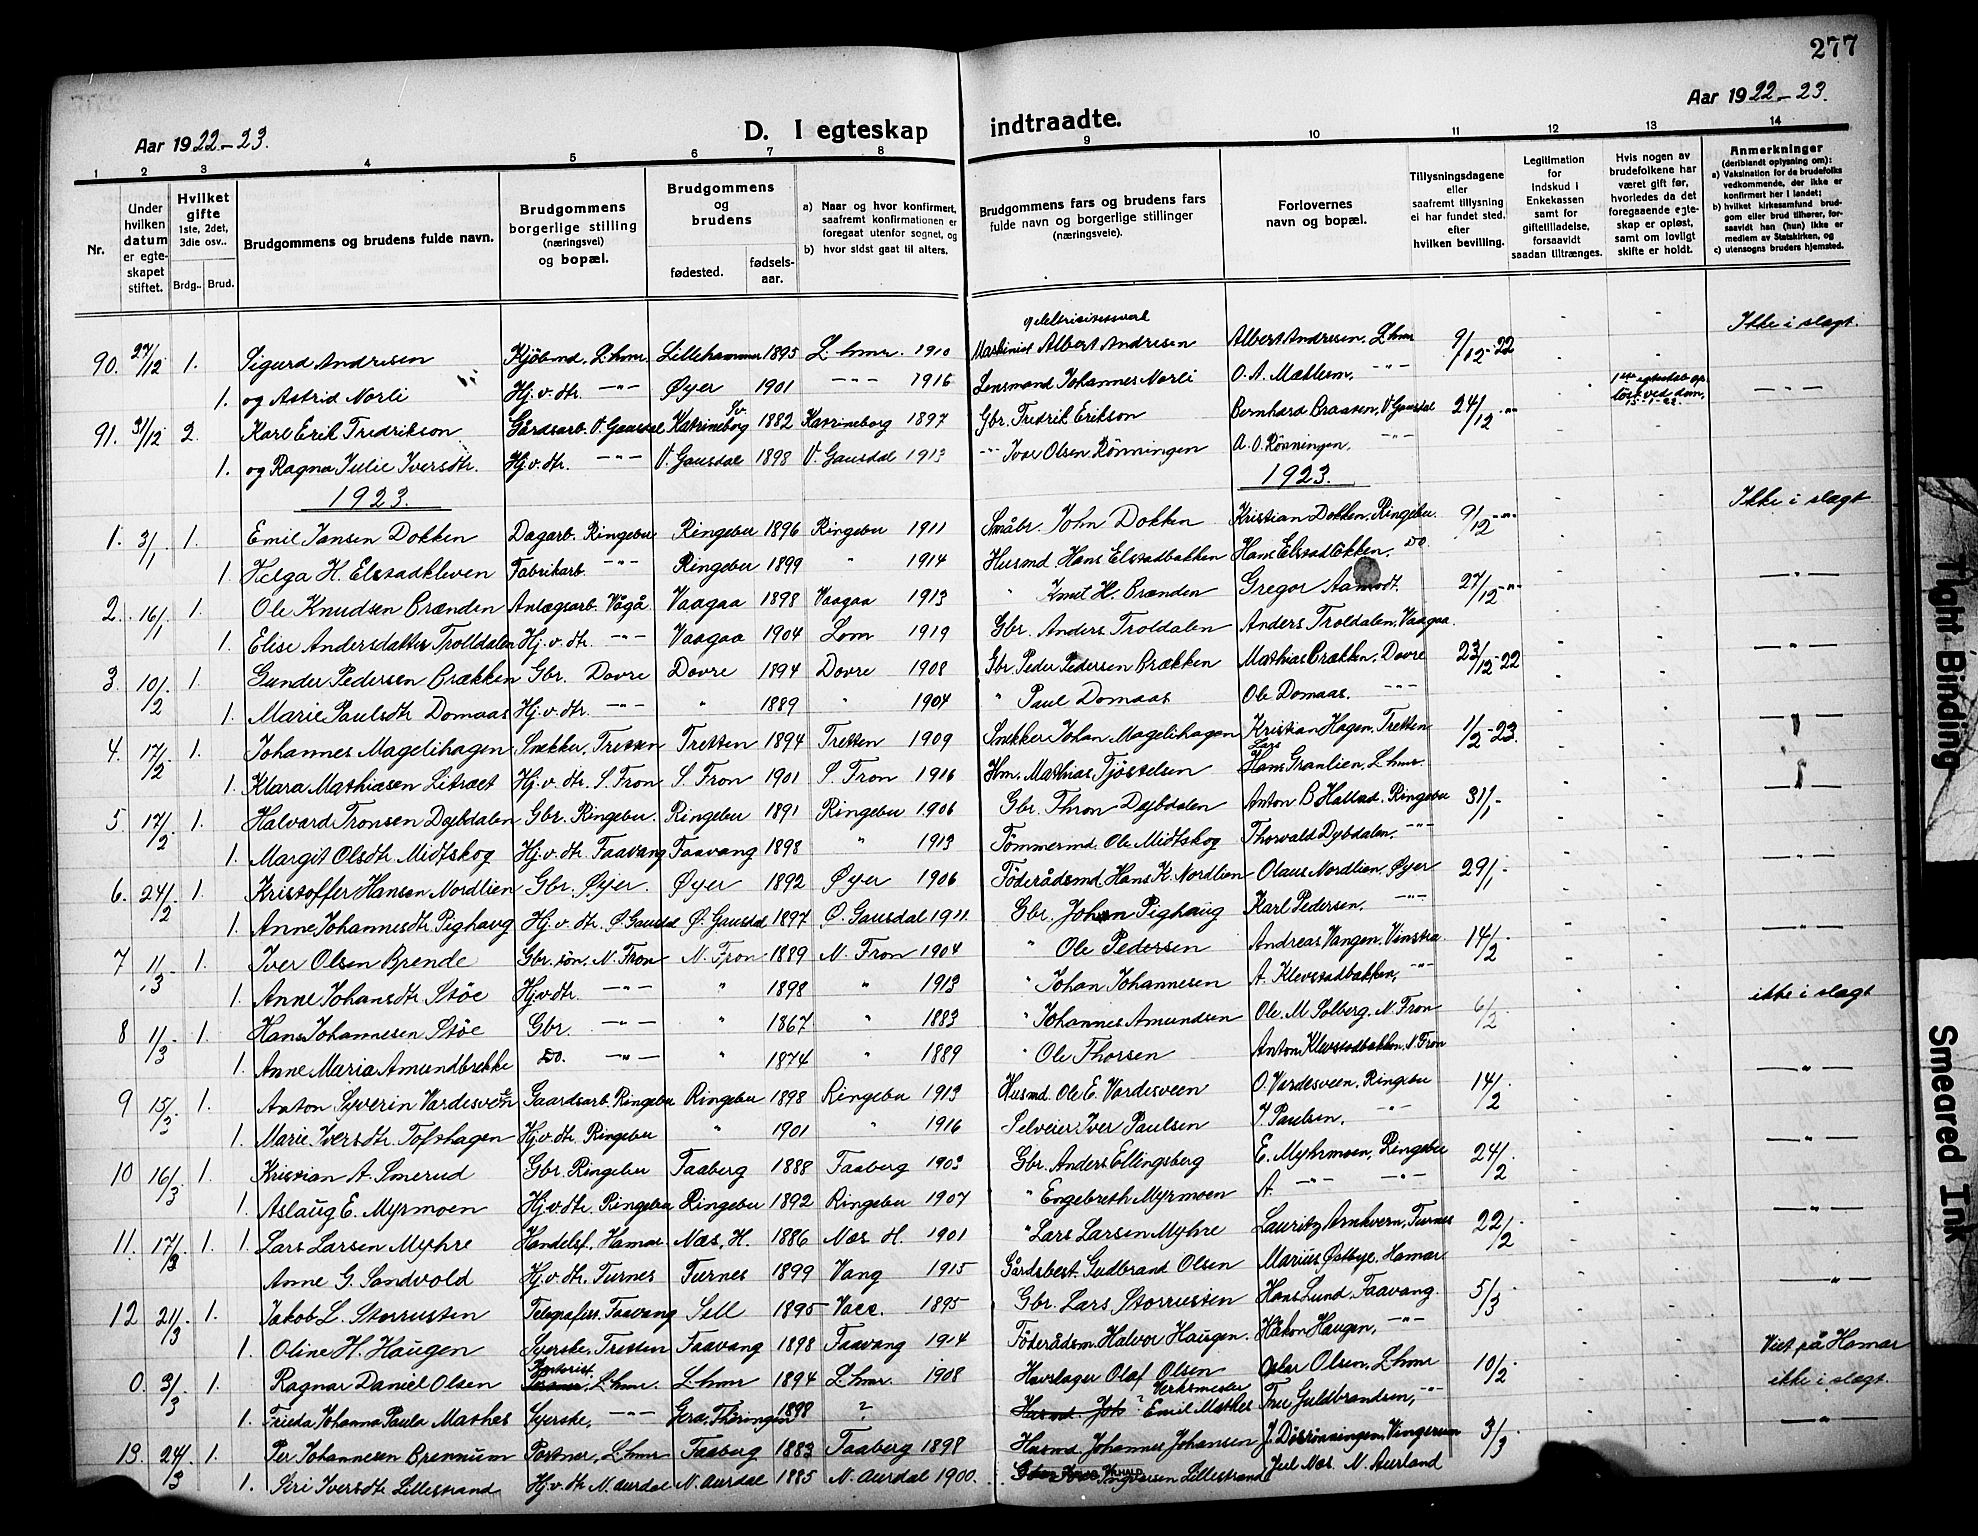 277
Aar 1922-23.
D. I egteskap indtraadte.
Aar 1922-23.
1 2 3 4 5 6 7 8 9 10 11 12 13 14
Nr.
Under hvilken datum er egteskapet stiftet.
Hvilket gifte 1ste, 2det, 3die osv..
Brdg.. Brud.
Brudgommens og brudens fulde navn.
Brudgommens borgerlige stilling (næringsvei) og bopæl.
Brudgommens og brudens
fødested.
fødselsaar.
a) Naar og hvor konfirmert, saafremt konfirmationen er foregaat utenfor sognet, og
b) hvor sidst gaat til alters.
Brudgommens fars og brudens fars fulde navn og borgerlige stillinger (næringsveie).
Forlovernes navn og bopæl.
Tillysningsdagene eller saafremt tillysning ei har fundet sted. efter hvilken bevilling.
Legitimation for Indskud i Enkekassen samt for giftetilladelse, forsaavidt saadan tiltrænges.
Hvis nogen av brudefolkene har været gift før, hvorledes da det foregaaende egteskap er opløst, samt om lovligt skifte er holdt.
Anmerkninger (deriblandt oplysning om):
a) Vaksination for de brudefolks vedkommende, der ikke er konfirmert her i landet;
b) hvilket kirkesamfund brudgom eller brud tilhører, forsaavidt han (hun) ikke er medlem av Statskirken, og
c) utensogns bruders hjemsted.
90. 27/12 1. Sigurd Andresen Kjøbmd, L.hmr. Lillehammer 1895 L.hmr. 1910 Maskinist v/elektrisitetsverk Albert Andresen Albert Andresen, L.hmr 9/12-22 Ikke i slegt.
1. og Astrid Norli Hj.v.dtr. -"- Øyer 1901 -"- 1916 Lensmand Johannes Norli O. A. Mæhlum, -"-
91. 31/12 2. Karl Erik Fredrikson Gårdsarb. V. Gausdal Katrineborg Sv. 1882 Katrineborg 1897 Gbr. Fredrik Erikson Bernhard Braasen, V. Gausdal 24/12-" 1ste egteskab opløst ved dom, 15-1-22. -"-
1. og Ragna Julie Iversdtr. Hj.v.dtr. -"- V. Gausdal 1898 V. Gausdal 1913 -"- Iver Olsen Rønningen A. O. Rønningen, -"-
1923. 1923.
1. 3/1 1. Emil Jansen Dokken Dagarb. Ringebu Ringebu 1896 Ringebu 1911 Småbr. John Dokken Kristian Dokken, Ringebu. 9/12-" Ikke i slegt
1. Helga H. Elstadkleven Fabrikarb. -"- Ringebu 1899 " 1914 Husmd. Hans Elstadbakken Hans Elstadløkken. Do
2. 16/1 1. Ole Knudsen Brænden Anlægsarb. Vågå Vaagaa 1898 Vaagaa 1913 " Knut H. Brænden Gregor Aamodt. 27/12-" -"-
1. Elise Andersdatter Trolldalen Hj.v.dtr. -"- Vaagaa 1904 Lom 1919 Gbr. Anders Troldalen Anders Troldalen, Vaagaa.
3. 10/2 1. Gunder Pedersen Brækken Gbr. Dovre Dovre 1894 Dovre 1908 Gbr. Peder Pedersen Brækken Mathias Brækken, Dovre 23/12-22 -"-
1. Marie Paulsdtr Domaas Hj.v.dtr. -"- " 1889 " 1904 " Paul Domaas Ole Domaas. -"-
4. 17/2 1. Johannes Magelihagen Snekker, Tretten Tretten 1894 Tretten 1909 Snekker Johan Magelihagen Kristian Hagen, Tretten 1/2-23. -"-
1. Klara Mathiasen Litræet Hj.v.dtr. S. Fron S. Fron 1901 S. Fron 1916 Hm. Mathias Tjøstelsen Lars Granlien, L.hmr.
5 17/2 1. Halvard Tronsen Dybdalen Gbr. Ringebu. Ringebu 1891 Ringebu 1906 Gbr. Thron Dybdalen Anton B. Hallad, Ringebu 31/1- -"-
1. Margit Olsdtr Midtskog Hj.v.dtr. Faavang Faavang 1898 " 1913 Tømmermd. Ole Midtskog Thorvald Dybdalen, -"-
6. 24/2 1. Kristoffer Hansen Nordlien Gbr. Øyer. Øyer 1892 Øyer 1906 Føderådsmd. Hans K. Nordlien Olaus Nordlien, Øyer 29/1- -"-
1. Anne Johannesdtr Pighaug Hj.v.dtr. Ø. Gausdal Ø. Gausdal 1897 Ø. Gausdal 1911. Gbr. Johan Pighaug Karl Pedersen, -"-
7 11/3- 1. Iver Olsen Brende Gbr.søn, N. Fron N. Fron 1889 N. Fron 1904 " Ole Pedersen Andreas Vangen, Vinstra. 14/2 -"-
1. Anne Johansdtr Støe Hj.v.dtr. -"- " 1898 " 1913 " Johan Johannesen A. Klevstadbakken, -"-
8 11/3- 1. Hans Johannesen Støe Gbr. -"- " 1867 " 1883 " Johannes Amundsen Ole M. Solberg, N. Fron 6/2- ikke i slegt
1. Anne Maria Amundbrekke Do. -"- " 1874 " 1889 " Ole Thorsen Anton Klevstadbakken, N. Fron
9 15/3 1. Anton Syverin Vardesveen Gaardsarb. Ringebu Ringebu 1898 Ringebu 1913 Husmd Ole E. Vardesveen O. Vardesveen, Ringebu 14/2- -"-
1. Marie Iversdtr. Tofshagen Hj.v.dtr. Ringebu " 1901 " 1916 Selveier Iver Paulsen I. Paulsen, -"-
10 16/3 1. Kristian A. Smerud Gbr. Ringebu Faaberg 1888 Faaberg 1903 Gbr. Anders Ellingsberg E. Myhrmoen, Ringebu 24/2- -"-
1. Aslaug E. Myrmoen Hj.v.dtr. Ringebu Ringebu 1892 Ringebu 1907 " Engebreth Myrmoen A. -"- -"-
11. 17/3 1. 1. Lars Larsen Myhre Handelsf. Hamar Næs, H. 1886 Næs H. 1901 " Lars Larsen Myhre Lauritz Arnkvern, Furnes 22/2- -"-
Anne G. Sandvold Hj.v.dtr. Furnes Furnes 1899 Vang 1915 Gårdsbest. Gudbrand Olsen Marius Østbye, Hamar
12 21/3 1. Jakob L. Storrusten Telegrafist. Faavang Sell 1895 1895 Gbr. Lars Storrusten Hans Lund, Faavang. 5/3- -"-
1. Oline H. Haugen Syerske, Tretten Faavang 1898 Faavang 1914 Føderådsm. Halvor Haugen. Håkon Haugen, -"-
0. 3/3 1. Ragnar Daniel Olsen Kontorist, L.hmr. L.hmr 1894 L.hmr. 1908 Hovslager Olaf Olsen Olsen, L.hmr 10/2- Viet på Hamar ikke i slegt.
1. Frieda Johanna Paula Mathes Syerske, -"- Gera, Thüringen 1898 ? Verksmester Emil Mathes Fru Guldbrandsen, -"-
13. 24/3 1. Per Johannesen Brennum Portner, L.hmr Faaberg 1883 Faaberg 1898 Husmd. Johannes Johansen J. Døsrønningen, Vingerom 3/3- -"-
1. Siri Iversdtr Lillestrand Hj.v.dtr N. Aurdal N. Aurdal 1885 N. Aurdal 1900. Ingvarsen Lillestrand Juul Næs N. Aurland
Tight Binding
Smeared Ink